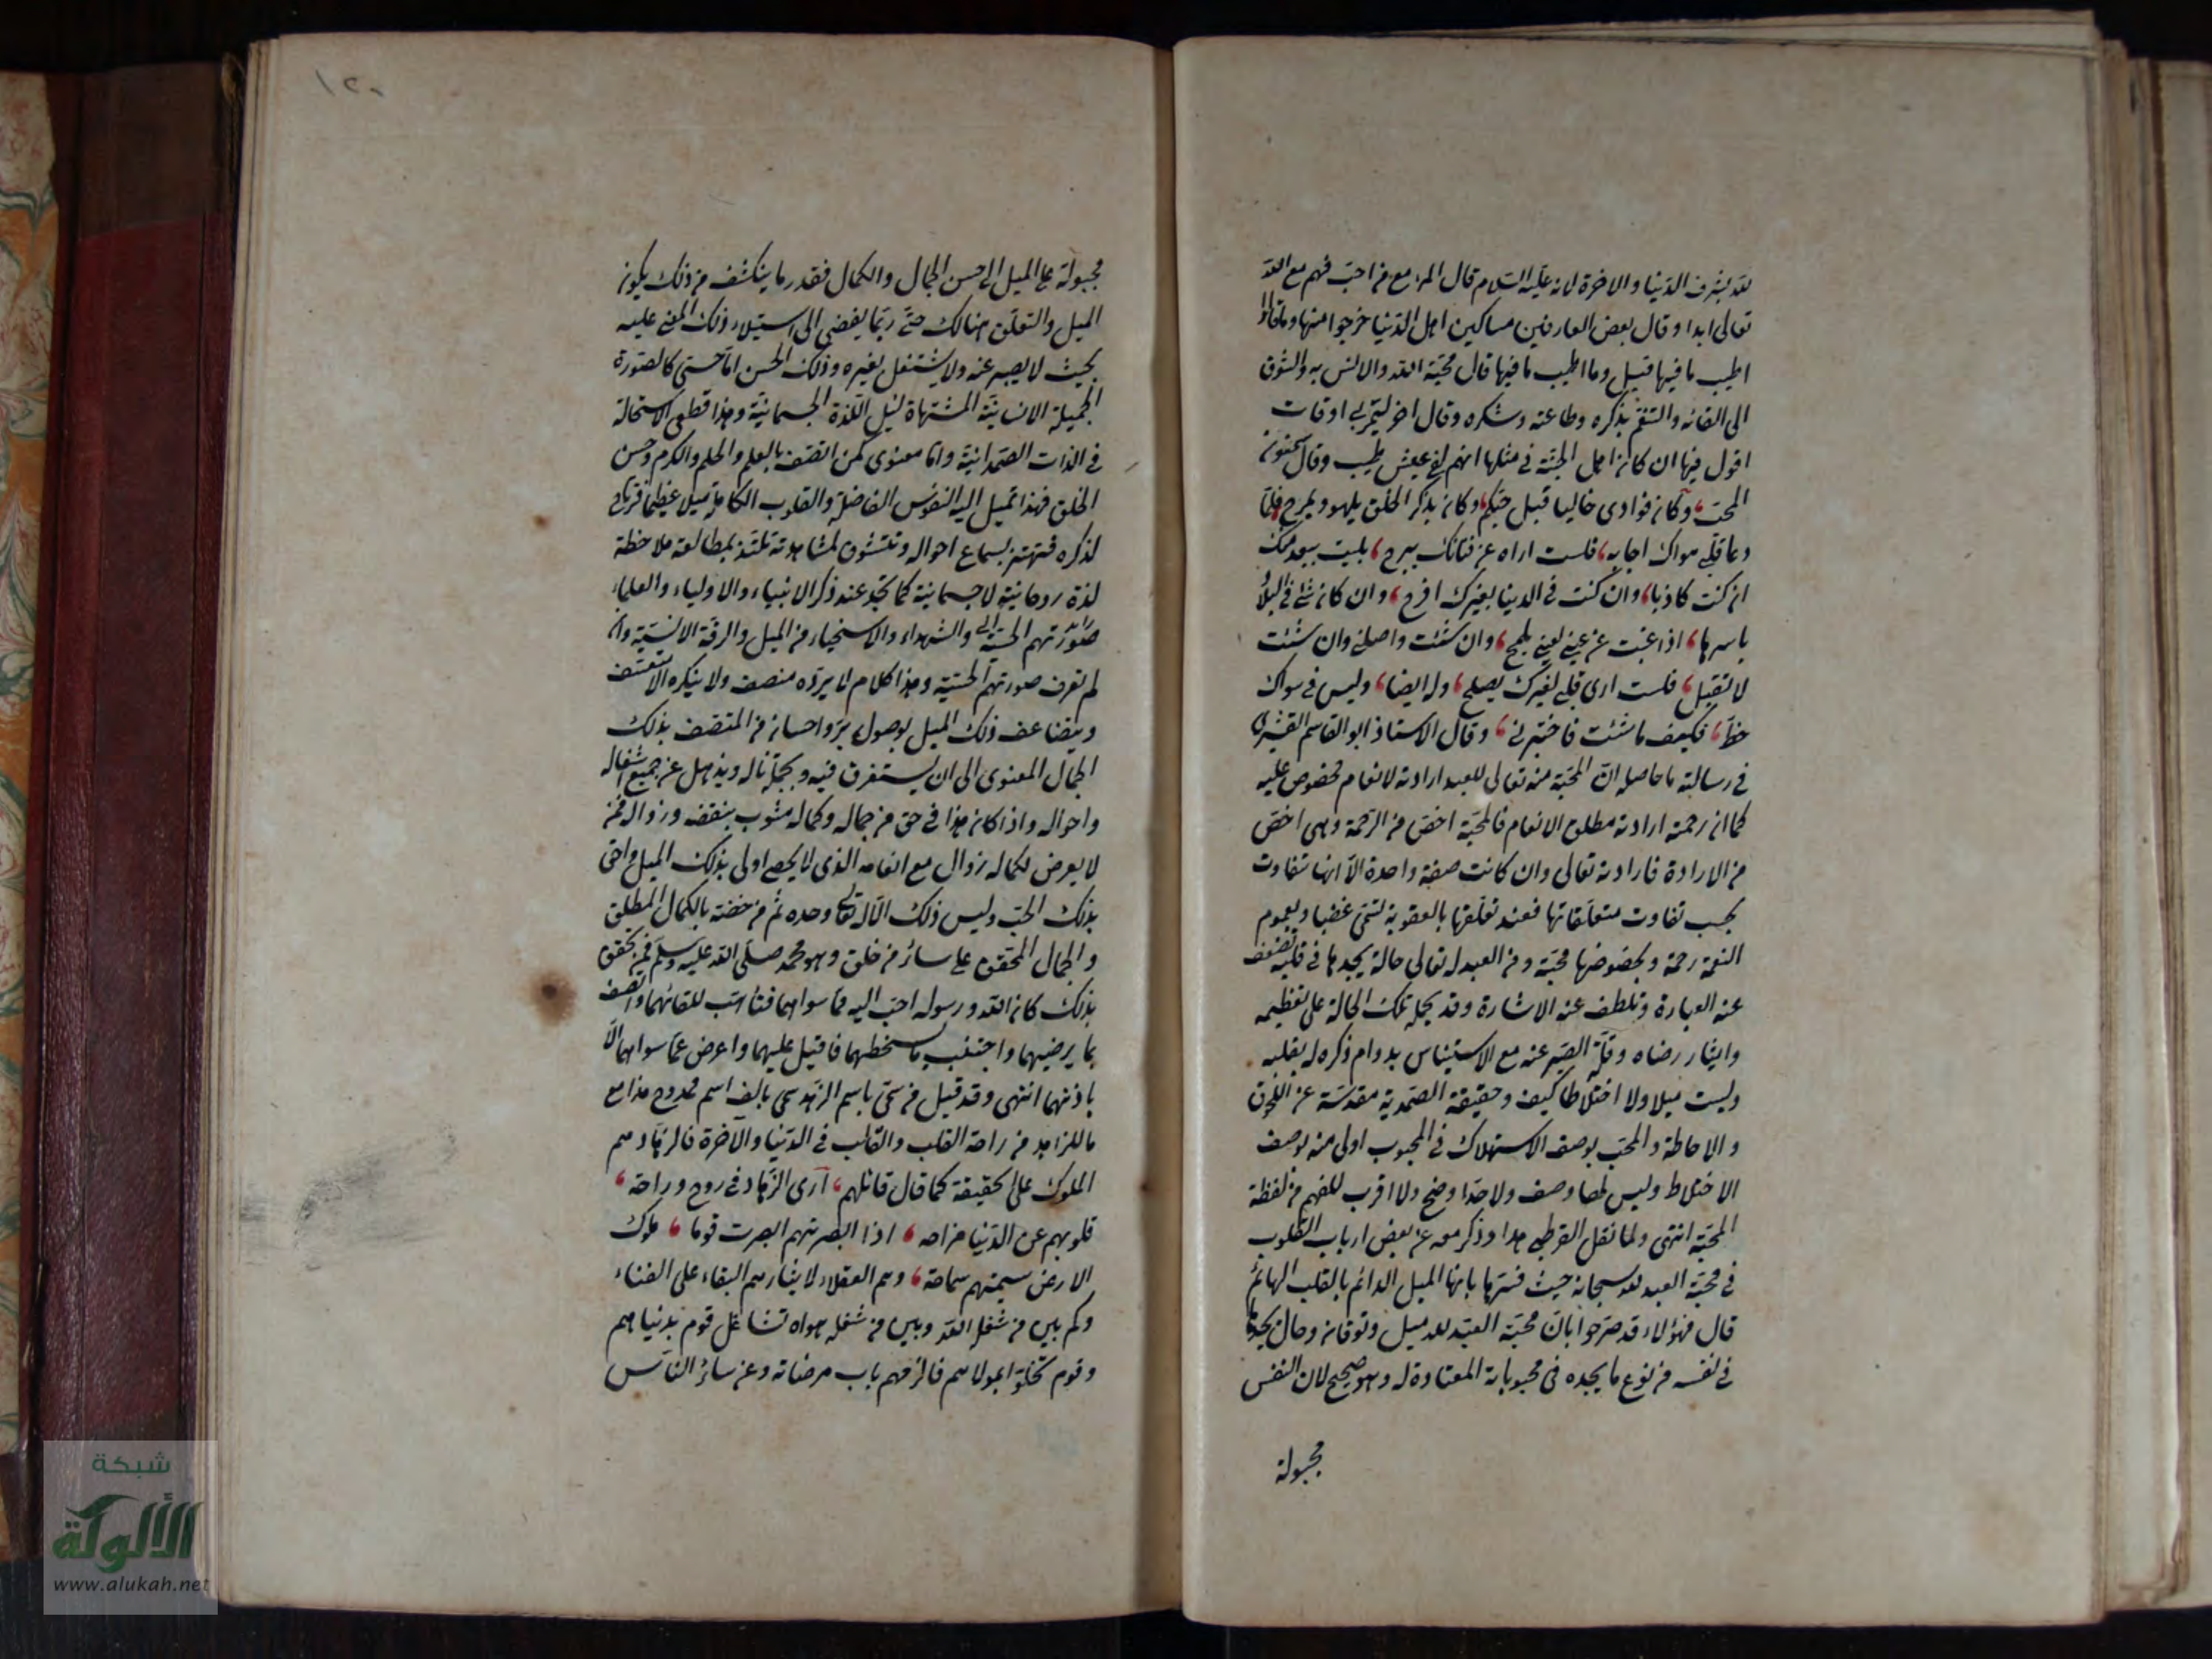 لله بشرف الدنيا والاخرة لانه عليه السلام قال المرء مع من احب فهم مع الله
تعالى ابدا وقال بعض العارفين مساكين اهل الدنيا خرجوا منها وما ذاقوا
اطيب ما فيها قيل وما اطيب ما فيها قال محبة الله والانس به والشوق
الى لقائه والتنعم بذكره وطاعته وشكره وقال اخر ليمر بي اوقات
اقول فيها ان كان اهل الجنة في مثلها انهم لفي عيش طيب وقال سمنون
المحب، وكان فوادى خاليا قبل حبكم، وكان بذكر الخلق يلهو ويمرح، فلما
دعا قلبي هواك اجابه، فلست اراه عن فنائك يبرح، بليت ببعد منك
ان كنت كاذبا، وان كنت في الدنيا بغيرك افرح، وان كان شئ في البلاد
باسرها، اذا غبت عن عيني لعيني يملح، وان شئت واصلني وان شئت
لا تقبل، فلست ارى قلبي لغيرك يصلح، وله ايضا، وليس في سواك
حظ، فكيف ما شئت فاختبرني، وقال الاستاذ ابو القاسم القشيرى
في رسالته ما حاصله ان المحبة منه تعالى للعبد ارادته لانعام مخصوص عليه
كما ان رحمته ارادته مطلق الانعام فالمحبة اخص من الرحمة وهى اخص
من الارادة فارادته تعالى وان كانت صفة واحدة الا انها تتفاوت
بحسب تفاوت متعلقاتها فعند تعلقها بالعقوبة تسمى غضبا وبعموم
النعمة رحمة وبخصوصها محبة ومن العبد له تعالى حالة يجدها في قلبه تضعف
عنه العبارة وتلطف عنه الاشارة وقد يحمله تلك الحالة على تعظيمه
وايثار رضاه وقلة الصبر عنه مع الاستيناس بدوام ذكره له بقلبه
وليست ميلا ولا اختلاطا كيف وحقيقة الصمدية مقدسة عن اللحوق
والاحاطة والمحب بوصف الاستهلاك في المحبوب اولى منه بوصف
الاختلاط وليس لها وصف ولا حد اوضح ولا اقرب للفهم من لفظة
المحبة انتهى ولما نقل القرطبي هذا وذكر معه عن بعض ارباب القلوب
في محبة العبد لله سبحانه حيث فسرها بانها الميل الدائم بالقلب الهائم
قال فهؤلاء قد صرحوا بان محبة العبد لله ميل وتوقان وحال يجدها
في نفسه من نوع ما يجده في محبوباته المعتادة له وهو صحيح لان النفس
مجبولة
١٢٠
مجبولة على الميل الى حسن الجمال والكمال فقدر ما ينكشف من ذلك يكون
الميل والتعلق هنالك حتى ربما يفضى الى استيلاء ذلك المعنى عليه
بحيث لا يصبر عنه ولا يشتغل بغيره وذلك الحسن اما حسى كالصورة
الجميلة الانسانية المشتهاة لنيل اللذة الجسمانية وهذا قطعى الاستحالة
في الذات الصمدانية واما معنوى كمن اتصف بالعلم والحلم والكرم وحسن
الخلق فهذا تميل اليه النفوس الفاضلة والقلوب الكاملة ميلا عظيما فترتاح
لذكره فتهتز بسماع احواله وتتشوق لمشاهدته تلتذ بمطالعة ملاحظة
لذة روحانية لا جسمانية كما تجد عند ذكر الانبياء والاولياء والعلماء
والشهداء والاسخياء من الميل والرقة الانسية وان
لم نعرف صورتهم الحسية وهذا كلام لا يرده منصف ولا ينكره الا متعسف
ويتضاعف ذلك الميل بوصول بر واحسان من المتصف بذلك
الجمال المعنوى الى ان يستغرق فيه وبجملة ناله ويذهل عن جميع اشغاله
واحواله واذا كان هذا في حق من جماله وكماله مشوب بنقص وزوال فمن
لا يعرض لكماله زوال مع انعامه الذى لا يحصى اولى بذلك الميل واحق
بذلك الحب وليس ذلك الا له تعالى وحده ثم من خصه بالكمال المطلق
والجمال المحقق على سائر من خلق وهو محمد صلى الله عليه وسلم فمن تحقق
بذلك كان الله ورسوله احب اليه مما سواهما فتأهب للقائهما واتصف
بما يرضيهما واجتنب ما يسخطهما فاقبل عليهما واعرض عما سواهما الا
باذنهما انتهى وقد قيل من سمى باسم الزهد سمى بالف اسم ممدوح هذا مع
ما للزاهد من راحة القلب والقالب في الدنيا والآخرة فالزهاد هم
الملوك على الحقيقة كما قال قائلهم، ارى الزهاد في روح وراحة،
قلوبهم عن الدنيا مزاحه، اذا ابصرتهم ابصرت قوما، ملوك
الارض سيمتهم سماحة، وهم العقلاء لايثارهم البقاء على الفناء
وكم بين من شغله الله وبين من شغله هواه تشاغل قوم بدنياهم
وقوم تخلوا لمولاهم فالزمهم باب مرضاته وعن سائر الناس
شبكة
الألوكة
www.alukah.net